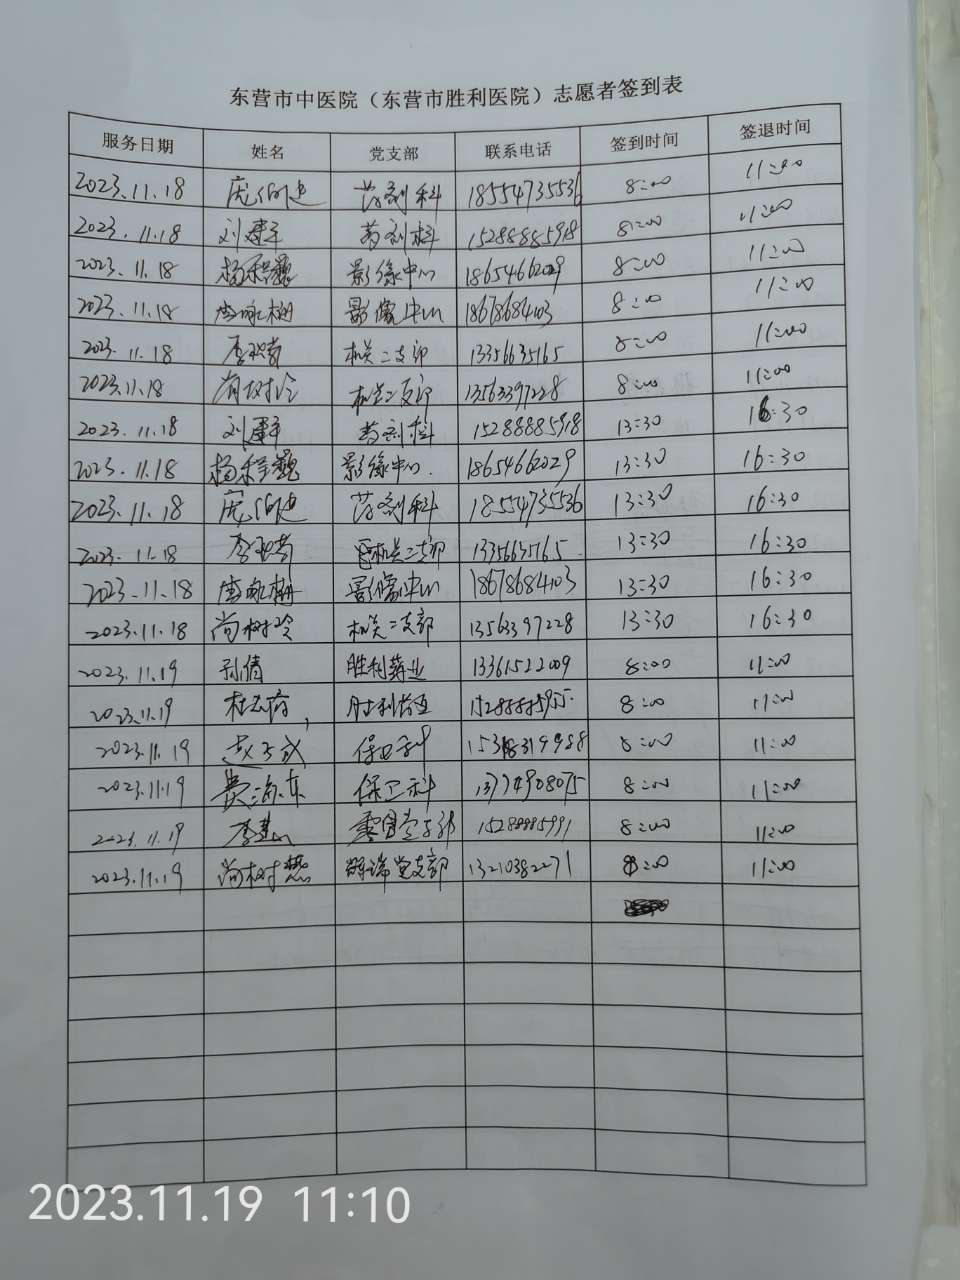 东营市中医院（东营市胜利医院）志愿者签到表
服务日期 姓名 党支部 联系电话 签到时间 签退时间
2023.11.18 药剂科 18554735536 8:00 11:00
2023.11.18 刘建军 药剂科 15288885918 8:00 11:00
2023.11.18 杨程巍 影像中心 18654662029 8:00 11:00
2023.11.18 影像中心 18678684103 8:00 11:00
2023.11.18 机关二支部 13356635165 8:00 11:00
2023.11.18 尚树玲 机关二支部 13563397228 8:00 11:00
2023.11.18 刘建军 药剂科 15288885918 13:30 16:30
2023.11.18 杨程巍 影像中心. 18654662029 13:30 16:30
2023.11.18 药剂科 18554735536 13:30 16:30
2023.11.18 机关二支部 13356635165 13:30 16:30
2023.11.18 影像中心 18678684103 13:30 16:30
2023.11.18 尚树玲 机关二支部 13563397228 13:30 16:30
2023.11.19 孙倩 胜利药业 13361522009 8:00 11:00
2023.11.19 胜利药业 15288885955 8:00 11:00
2023.11.19 赵子成 保卫科 8:00 11:00
2023.11.19 费海东 保卫科 13774908075 8:00 11:00
2023.11.19 15288885991 8:00 11:00
2023.11.19 尚树懋 党支部 13210382271 8:00 11:00
2023.11.19 11:10